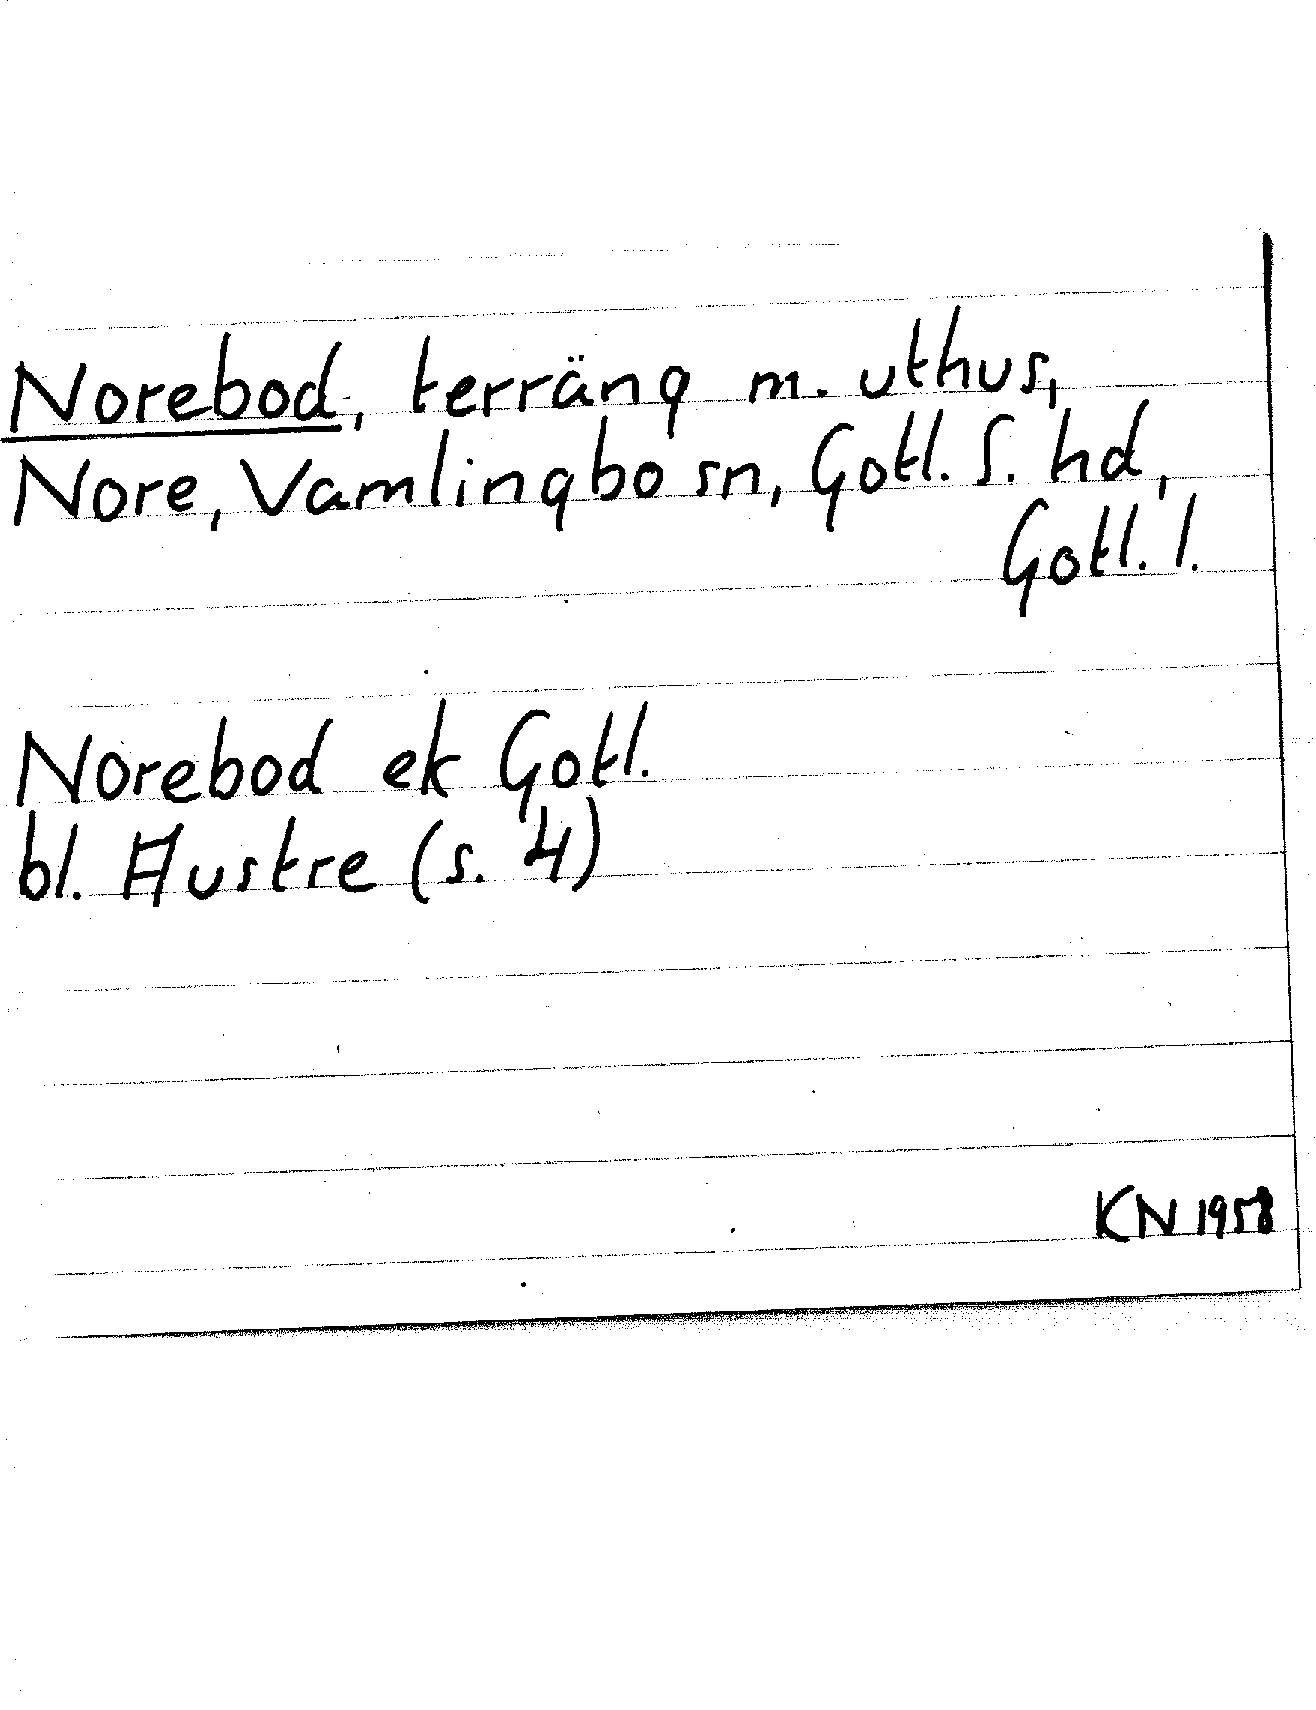 Norebod, terräng m. uthus,
Nore, Vamlingbo sn, Gotl. S. hd,
Gotl. l.
Norebod ek Gotl.
bl. Austre (s. 4)
KN 1958